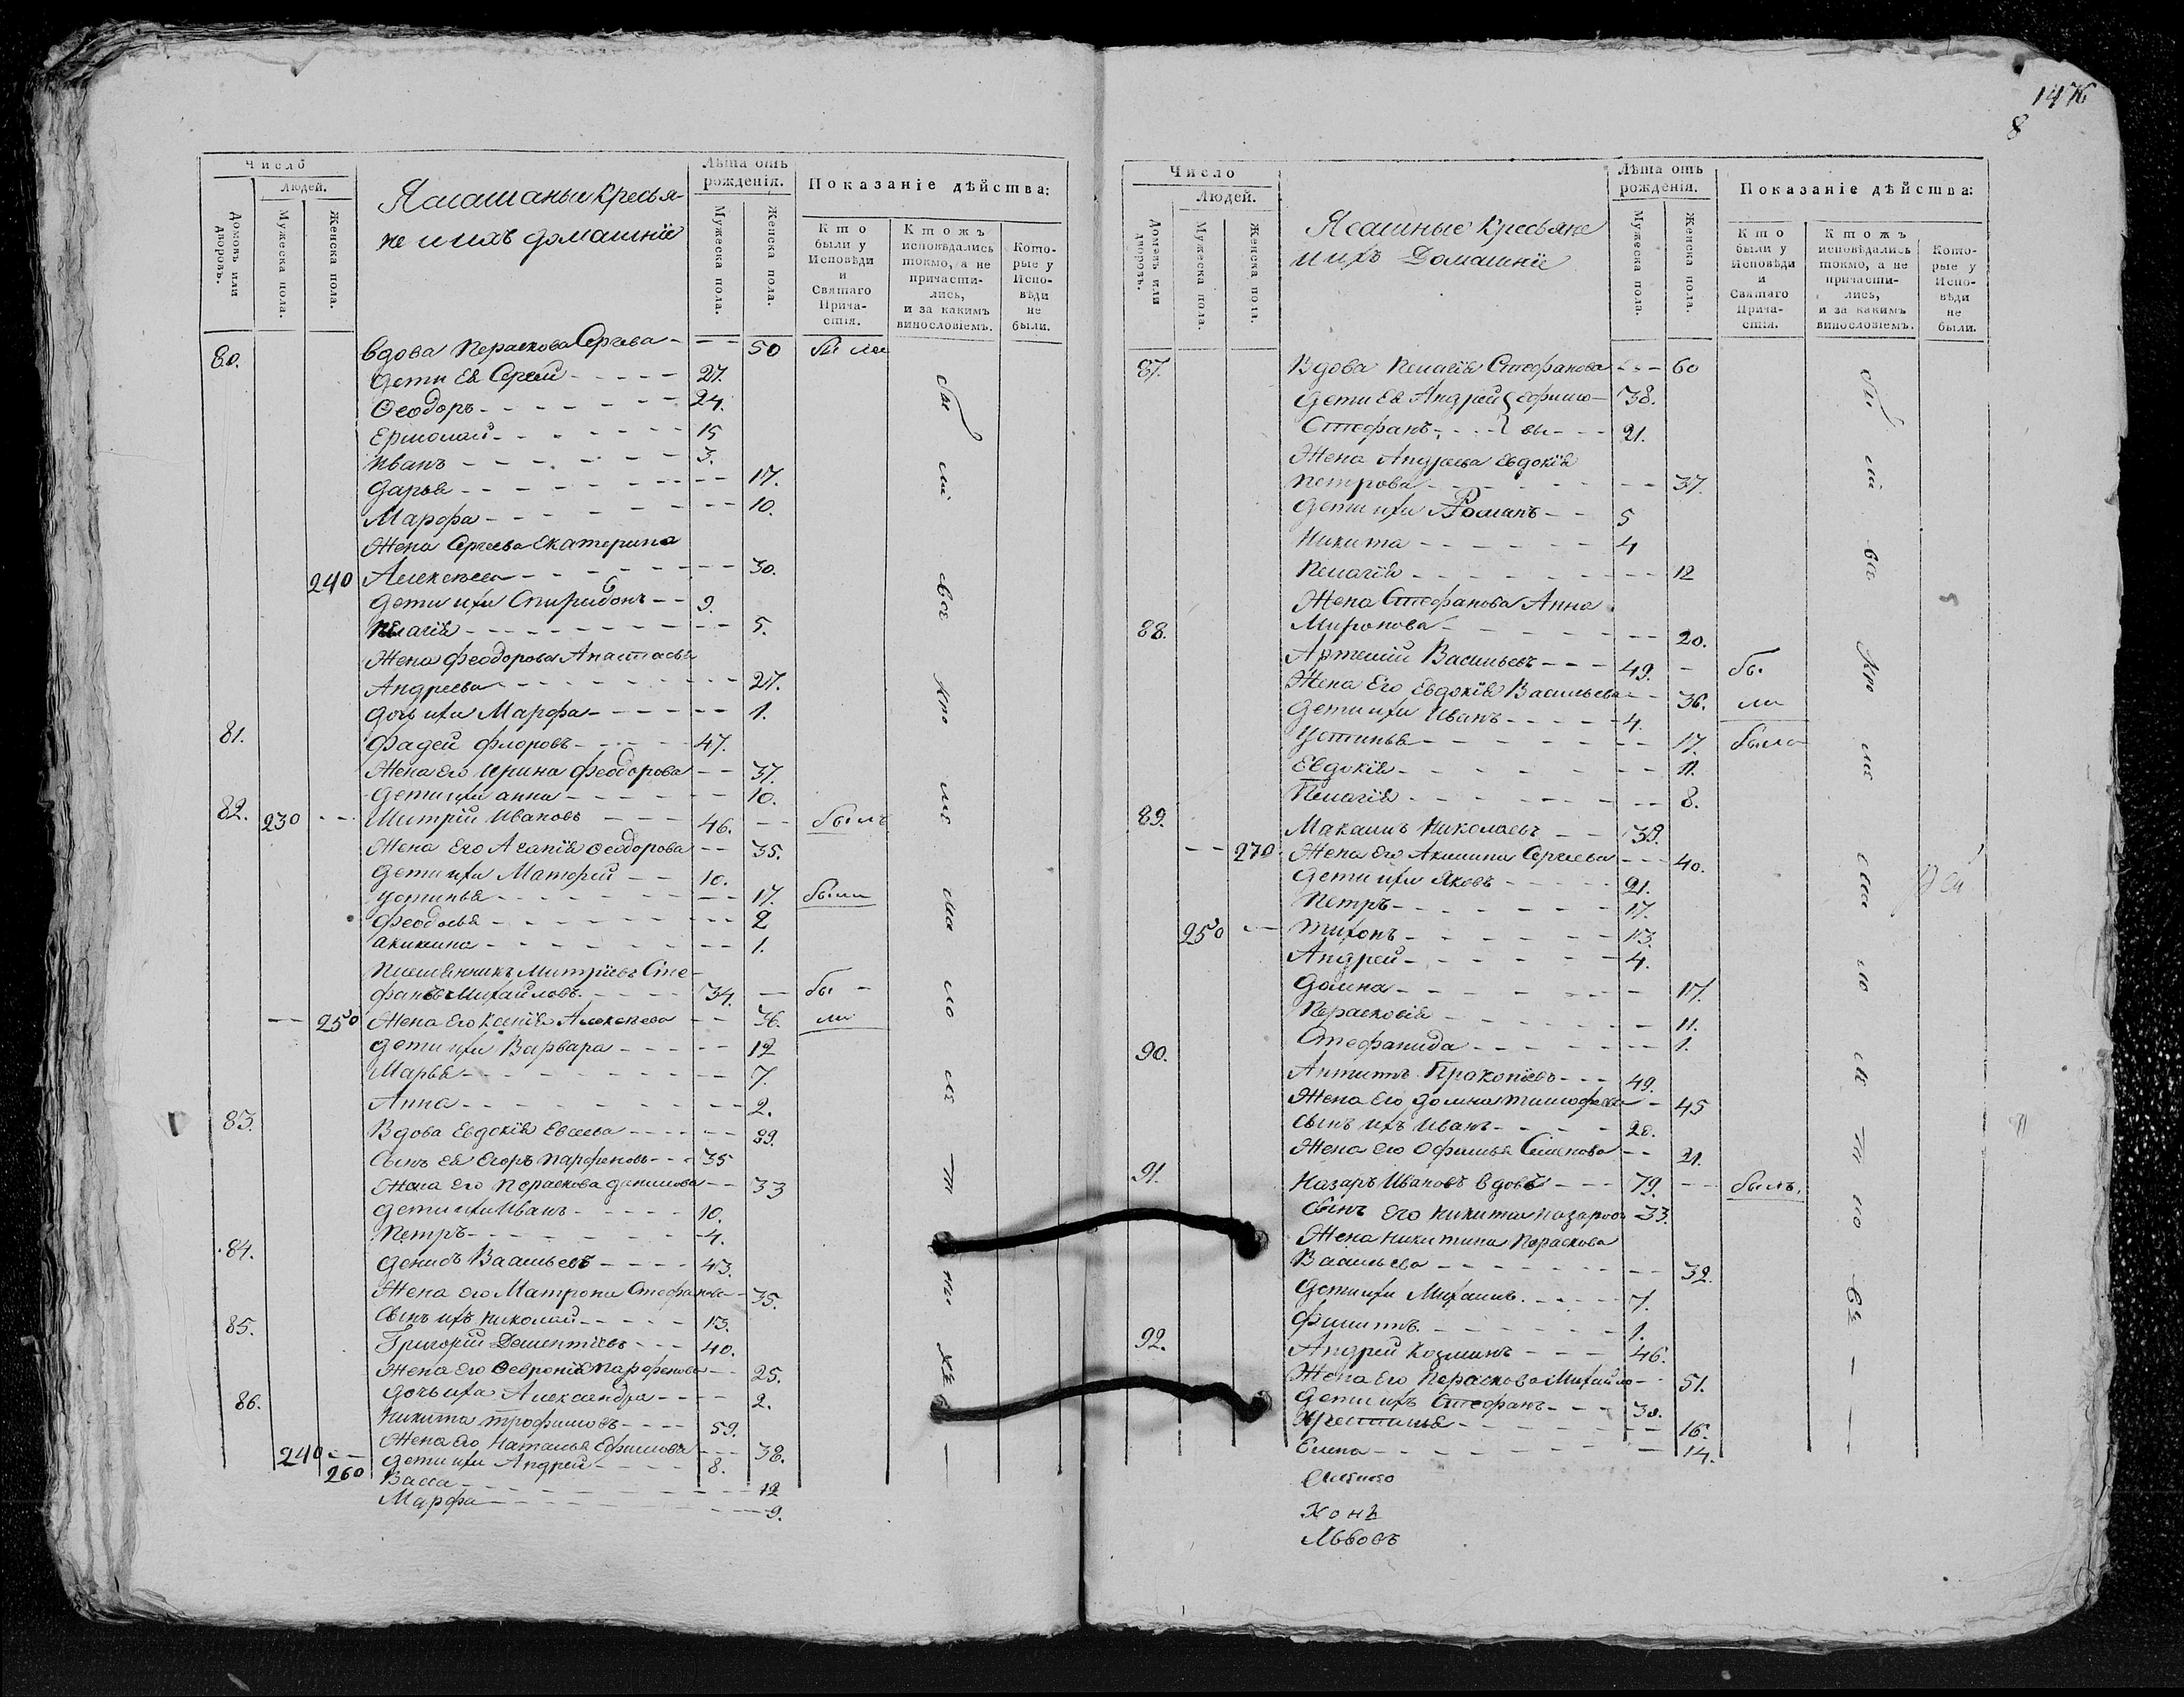 147б
8
Число
Людей.
Домовъ или дворовъ.
Мужеска пола.
Женска пола.
Ясашныи кресья-
не и ихъ домашнїи
Лѣта отъ рожденія.
Мужеска пола.
Женска пола.
Показаніе дѣйства:
Кто были у Исповѣди и Святаго Прича-стія.
Ктожъ исповѣдались токмо, а не причасти-лись, и за какимъ винословіемъ.
Кото-рые у Испо-вѣди не были.
80. вдова Пераскова Сергева - - - 50 были
дети Ея Сергей - - - - - 27.
Феодоръ - - - - - - - 24.
Ермолай - - - - - - - 15
Иванъ - - - - - - - 3.
Дарья - - - - - - - - 17.
Марфа - - - - - - - - 10.
Жена Сергеева Екатерина
240 Алексеева - - - - - - - - 30.
дети ихъ Спиридонъ - - 9.
Пелагія - - - - - - - - - - 5.
Жена Феодорова Анастасья
Андреева - - - - - - - - - 27.
дочь ихъ Марфа - - - - - - 1.
81. Фадей Флоровъ - - - - - 47.
Жена его Ирина Феодорова - - 37.
дети ихъ анна - - - - - - 10.
82. 230 - - Митрїй Ивановъ - - - 46. - - былъ
Жена Его Агапія Феодорова - - 35.
дети ихъ Матфей - - 10.
устинья - - - - - - - - 17. была
Феодосья - - - - - - - - 2
акилина - - - - - - - - - 1.
Племянникъ Митрїевъ Сте-
фанъ Михайловъ. - - - - 34. - бы -
- - 250 Жена его Ксенія Алексеева - - 36. ли
дети ихъ Варвара - - - - - 12
Марья - - - - - - - - 7.
Анна - - - - - - - - - 2.
83. Вдова Евдокія Евсеева - - - - - 39.
Сынъ ея Егоръ Парфеновъ - - - 35
Жена его Пераскова данилова - - 33
дети ихъ Иванъ - - - - - 10.
Петръ - - - - - - - - 4.
84. денисъ Васильевъ - - - - 43.
Жена его Матрона Стефанова - 35.
Сынъ ихъ Николай - - - - - 13.
85. Григорій Дементїевъ - - - 40.
Жена его Февронія Парфенова - - 25.
дочь ихъ Александра - - - - 2.
86. Никита Трофимовъ - - - - 59.
Жена его Наталья Ефимова - - - 38.
240 - - дети ихъ Андрей - - - - 8.
260 Васса - - - - - - - - - - 12
Марфа - - - - - - - - - - 9.
бы ли вси кро мѣ ма ло лѣ т ны хъ
Число
Людей.
Домовъ или дворовъ.
Мужеска пола.
Женска пола.
Ясашные Кресьяне
и ихъ Домашнїи
Лѣта отъ рожденія.
Мужеска пола.
Женска пола.
Показаніе дѣйства:
Кто были у Исповѣди и Святаго Прича-стія.
Ктожъ исповѣдались токмо, а не причасти-лись, и за какимъ винословіемъ.
Кото-рые у Испо-вѣди не были.
87. Вдова Пелагія Стефанова - - - 60
дети Ея Андрей } ефимо- 38.
Стефанъ - - - } вы - - - 21.
Жена Андреева Евдокія
Петрова - - - - - - - - 37.
дети ихъ Романъ - - 5
Никита - - - - - - - 4
Пелагія - - - - - - - - - 12
Жена Стефанова Анна
88. Миронова - - - - - - - - 20.
Артемий Васильевъ - - - 49. - бы.
Жена Его Евдокія Васильева - - 36. ли
дети ихъ Иванъ - - - - - 4.
Устинья - - - - - - - - 17. была
Евдокія - - - - - - - - 11.
Пелагія - - - - - - - - 8.
89. Максимъ Николаевъ - - 39.
- - 270. Жена его Акилина Сергеева - - - 40.
дети ихъ Яковъ - - - - - 21.
Петръ - - - - - - - - 17.
250 - - Тихонъ - - - - - - - 13.
Андрей - - - - - - - 4.
домна - - - - - - - - - 17.
Парасковія - - - - - - - - 11.
Стефанида - - - - - - - - 1.
90. Антипъ Прокопїевъ - - - 49.
Жена его домна Тимофеева - 45
сынъ ихъ Иванъ - - - - - 20.
Жена его Офимья Семенова - - 21.
91. Назаръ Ивановъ вдовъ - - - 79. - - былъ.
Сынъ его Никита Назаровъ 33.
Жена Никитина Пераскова
Васильева - - - - - - - - 32.
дети ихъ Михаилъ. - - - - - 7.
Филиппъ. - - - - - - - 1.
92. Андрей Козминъ - - - 46.
Жена Его Пераскова Михайло - - 51.
дети ихъ Стефанъ - - - 30.
Христинья - - - - - - - 16.
Елена - - - - - - - - - 14.
бы ли вси кро мѣ ма ло лѣ т но въ